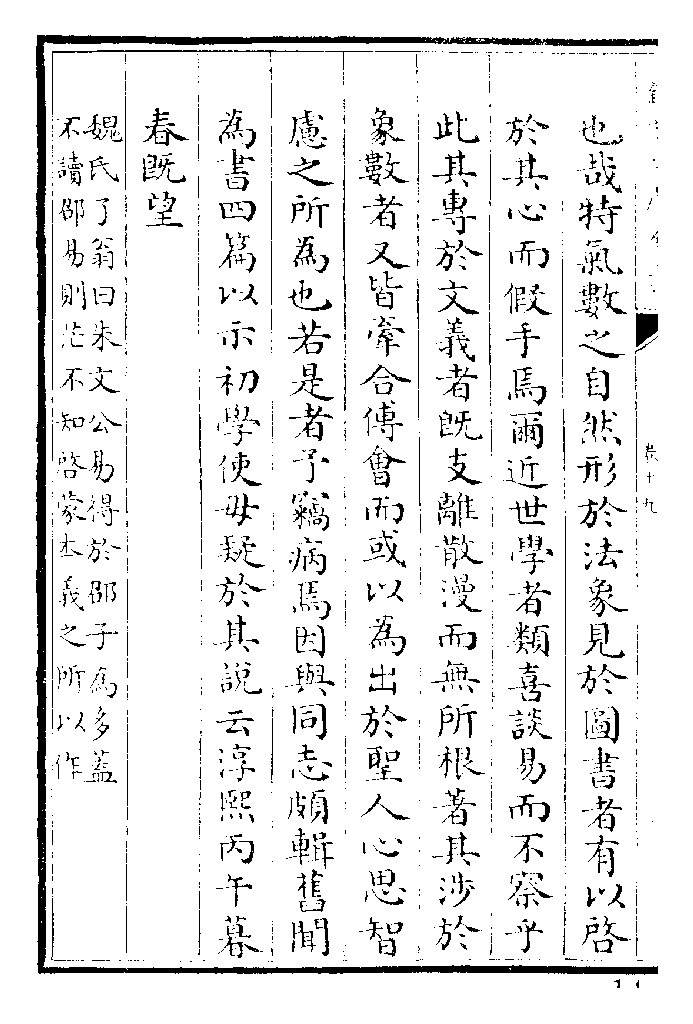 卷十九
也哉特氣數之自然形於法象見於圖書者有以啓
於其心而假手焉爾近世學者類喜談易而不察乎
此其專於文義者旣支離散漫而無所根著其涉於
象數者又皆牽合傅會而或以為出於聖人心思智
慮之所為也若是者予竊病焉因與同志頗輯舊聞
為書四篇以示初學使毋疑於其說云淳熙丙午暮
春旣望
魏氏了翁曰朱文公易得於邵子為多蓋
不讀邵易則茫不知啓蒙本義之所以作